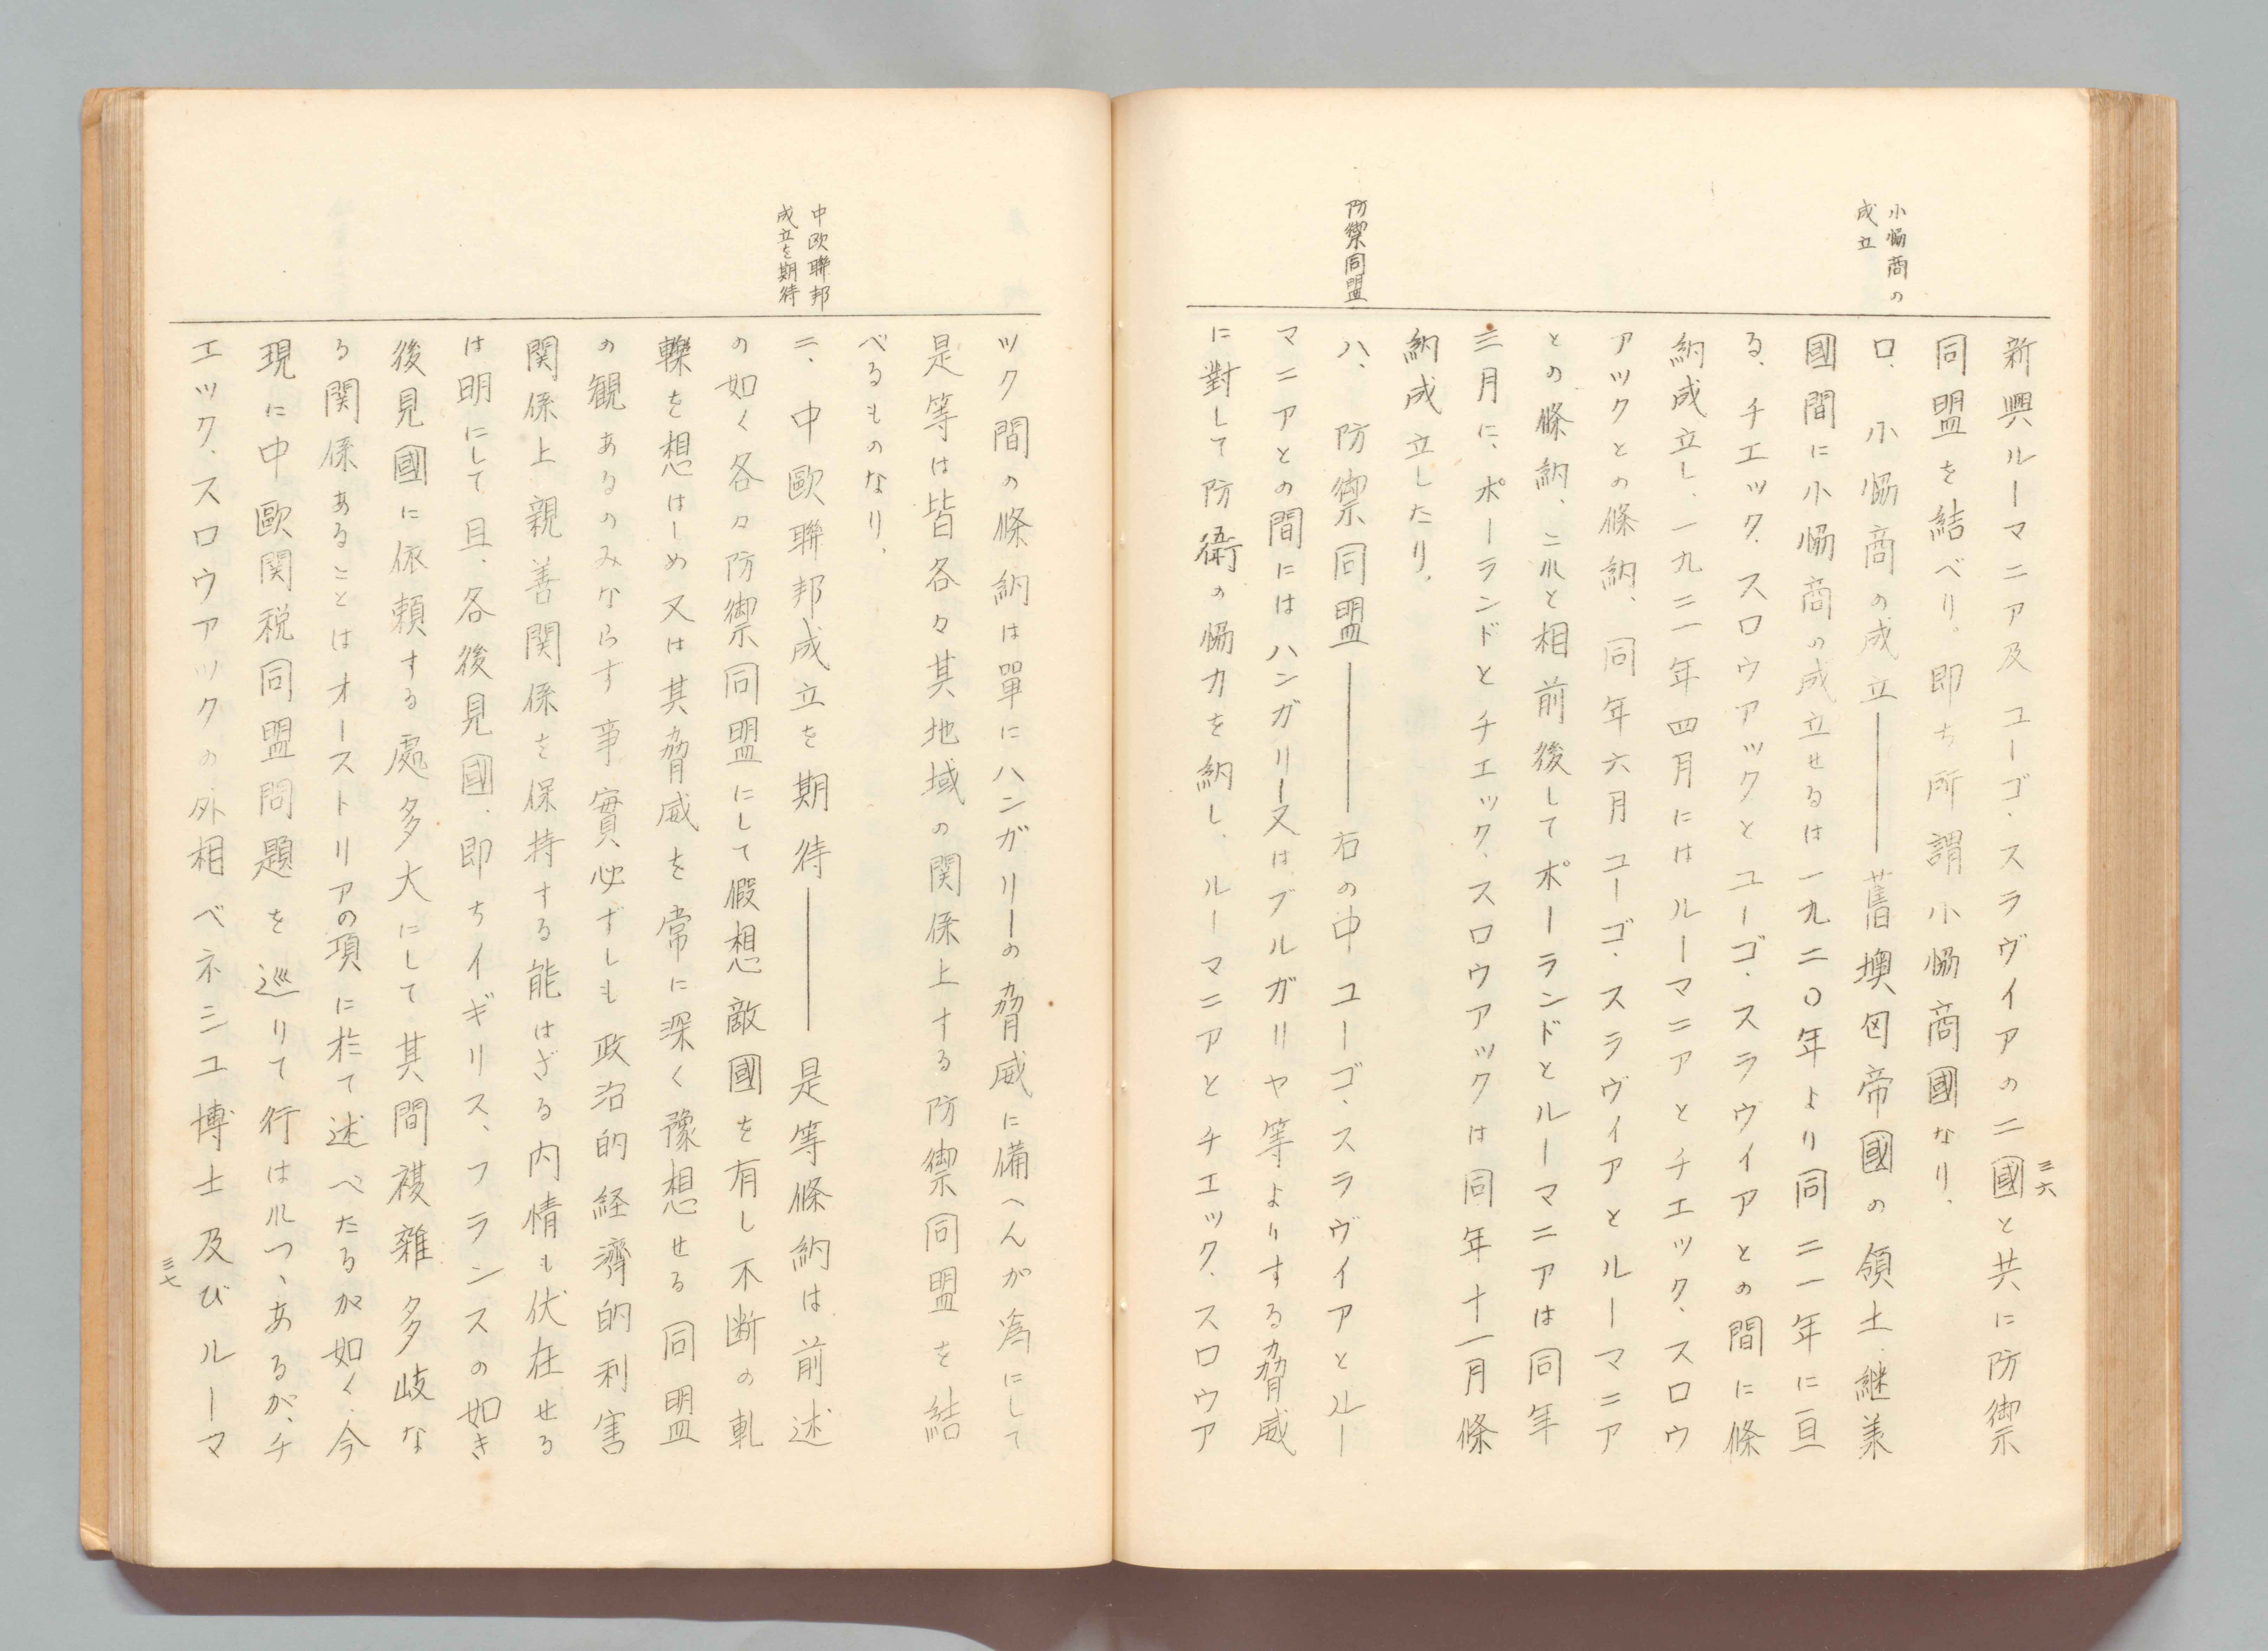 小協商の
成立
防禦同盟
新興ルーマニア及ユーゴ.スラヴイアの二國と共に防禦
同盟を結べり。即ち所謂小協商國なり、
ロ、小協商の成立───舊墺匈帝國の領土継羕
國間に小協商の成立せるは一九二〇年より同二一年に亘
る、チエック.スロウアックとユーゴ.スラヴイアとの間に條
約成立し、一九二一年四月にはルーマニアとチエック.スロウ
アックとの條約、同年六月ユーゴ.スラヴイアとルーマニア
との條約、二れと相前後してポーランドとルーマニアは同年
三月に、ポーランドとチエック.スロウアックは同年十一月條
約成立したり、
ハ、防禦同盟───右の中ユーゴ.スラヴイアとルー
マニアとの間にはハンガリー又はブルガリヤ等よりする脅威
に對して防衛の協力を約し、ルーマニアとチエック.スロウア
三六
中欧聯邦
成立を期待
ツク間の條約は單にハンガリーの脅威に備へんが為にして
是等は皆各々其地域の関係上する防禦同盟を結
べるものなり、
ニ、中歐聯邦成立を期待───是等條約は前述
の如く各々防禦同盟にして假想敵國を有し不断の軋
轢を想はしめ又は其脅威を常に深く豫想せる同盟
の観あるのみならす事實必ずしも政治的経済的利害
関係上親善関係を保持する能はざる内情も伏在せる
は明にして且、各後見國、即ちイギリス、フランスの如き
後見國に依頼する處多大にして其間複雑多岐な
る関係あることはオーストリアの項に於て述べたるが如く、今
現に中歐関税同盟問題を巡りて行はれつゝあるが、チ
エック.スロウアックの外相ベネシユ博士及びルーマ
三七